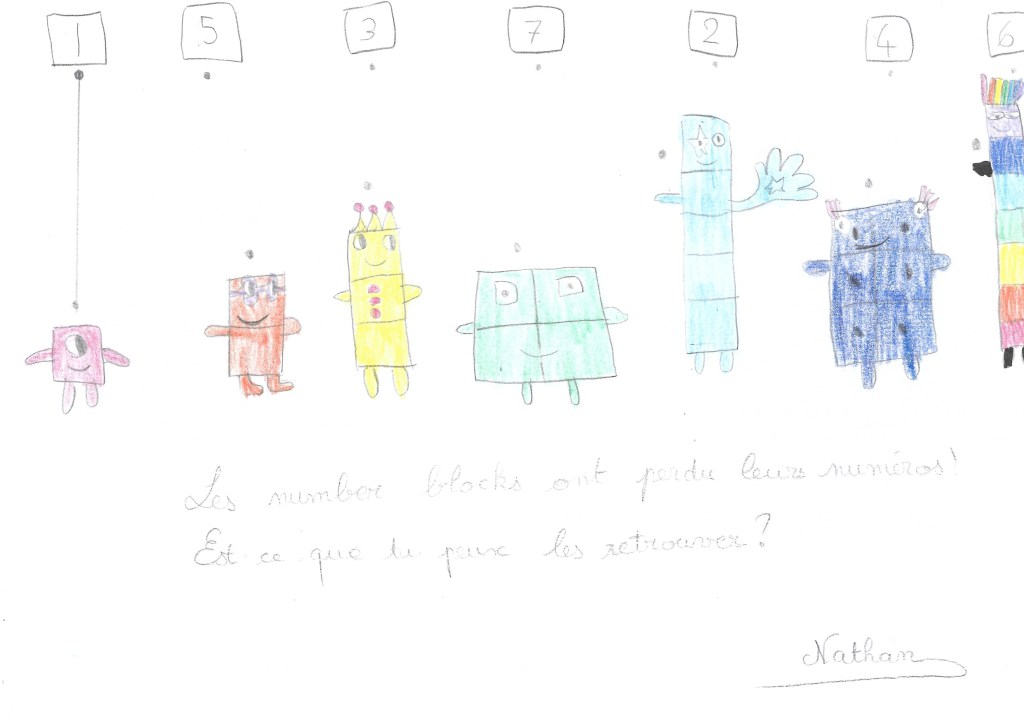 1 5 3 7 2 4 6
Les number blocks ont perdu leurs numéros!
Est ce que tu peux les retrouver?
Nathan